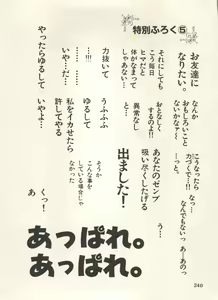 特別ふろく⑤
お友達に
なりたい。
なんか
おもしろいこと
ないかなァ〜
…っと。
こうなったら
カづくで〜!!!
なっ…
なんでもないっ
あーあのっ
それにしても
こう毎日
ヒマだと
体がなまって
しゃあない…
おとなしく
するのよ!!
異常なし
と…
あなたのゼンブ
吸い尽くしたげる
う…
出ました！
力抜いて
…!!!
いや…だ…
やったらゆるして
うふふふ
ゆるして
私をイカせたら
許してやる
いやよー！
そうか
こんな事を
している場合じゃ
なかった
くっ！
あ
あっぱれ。
あっぱれ。
240